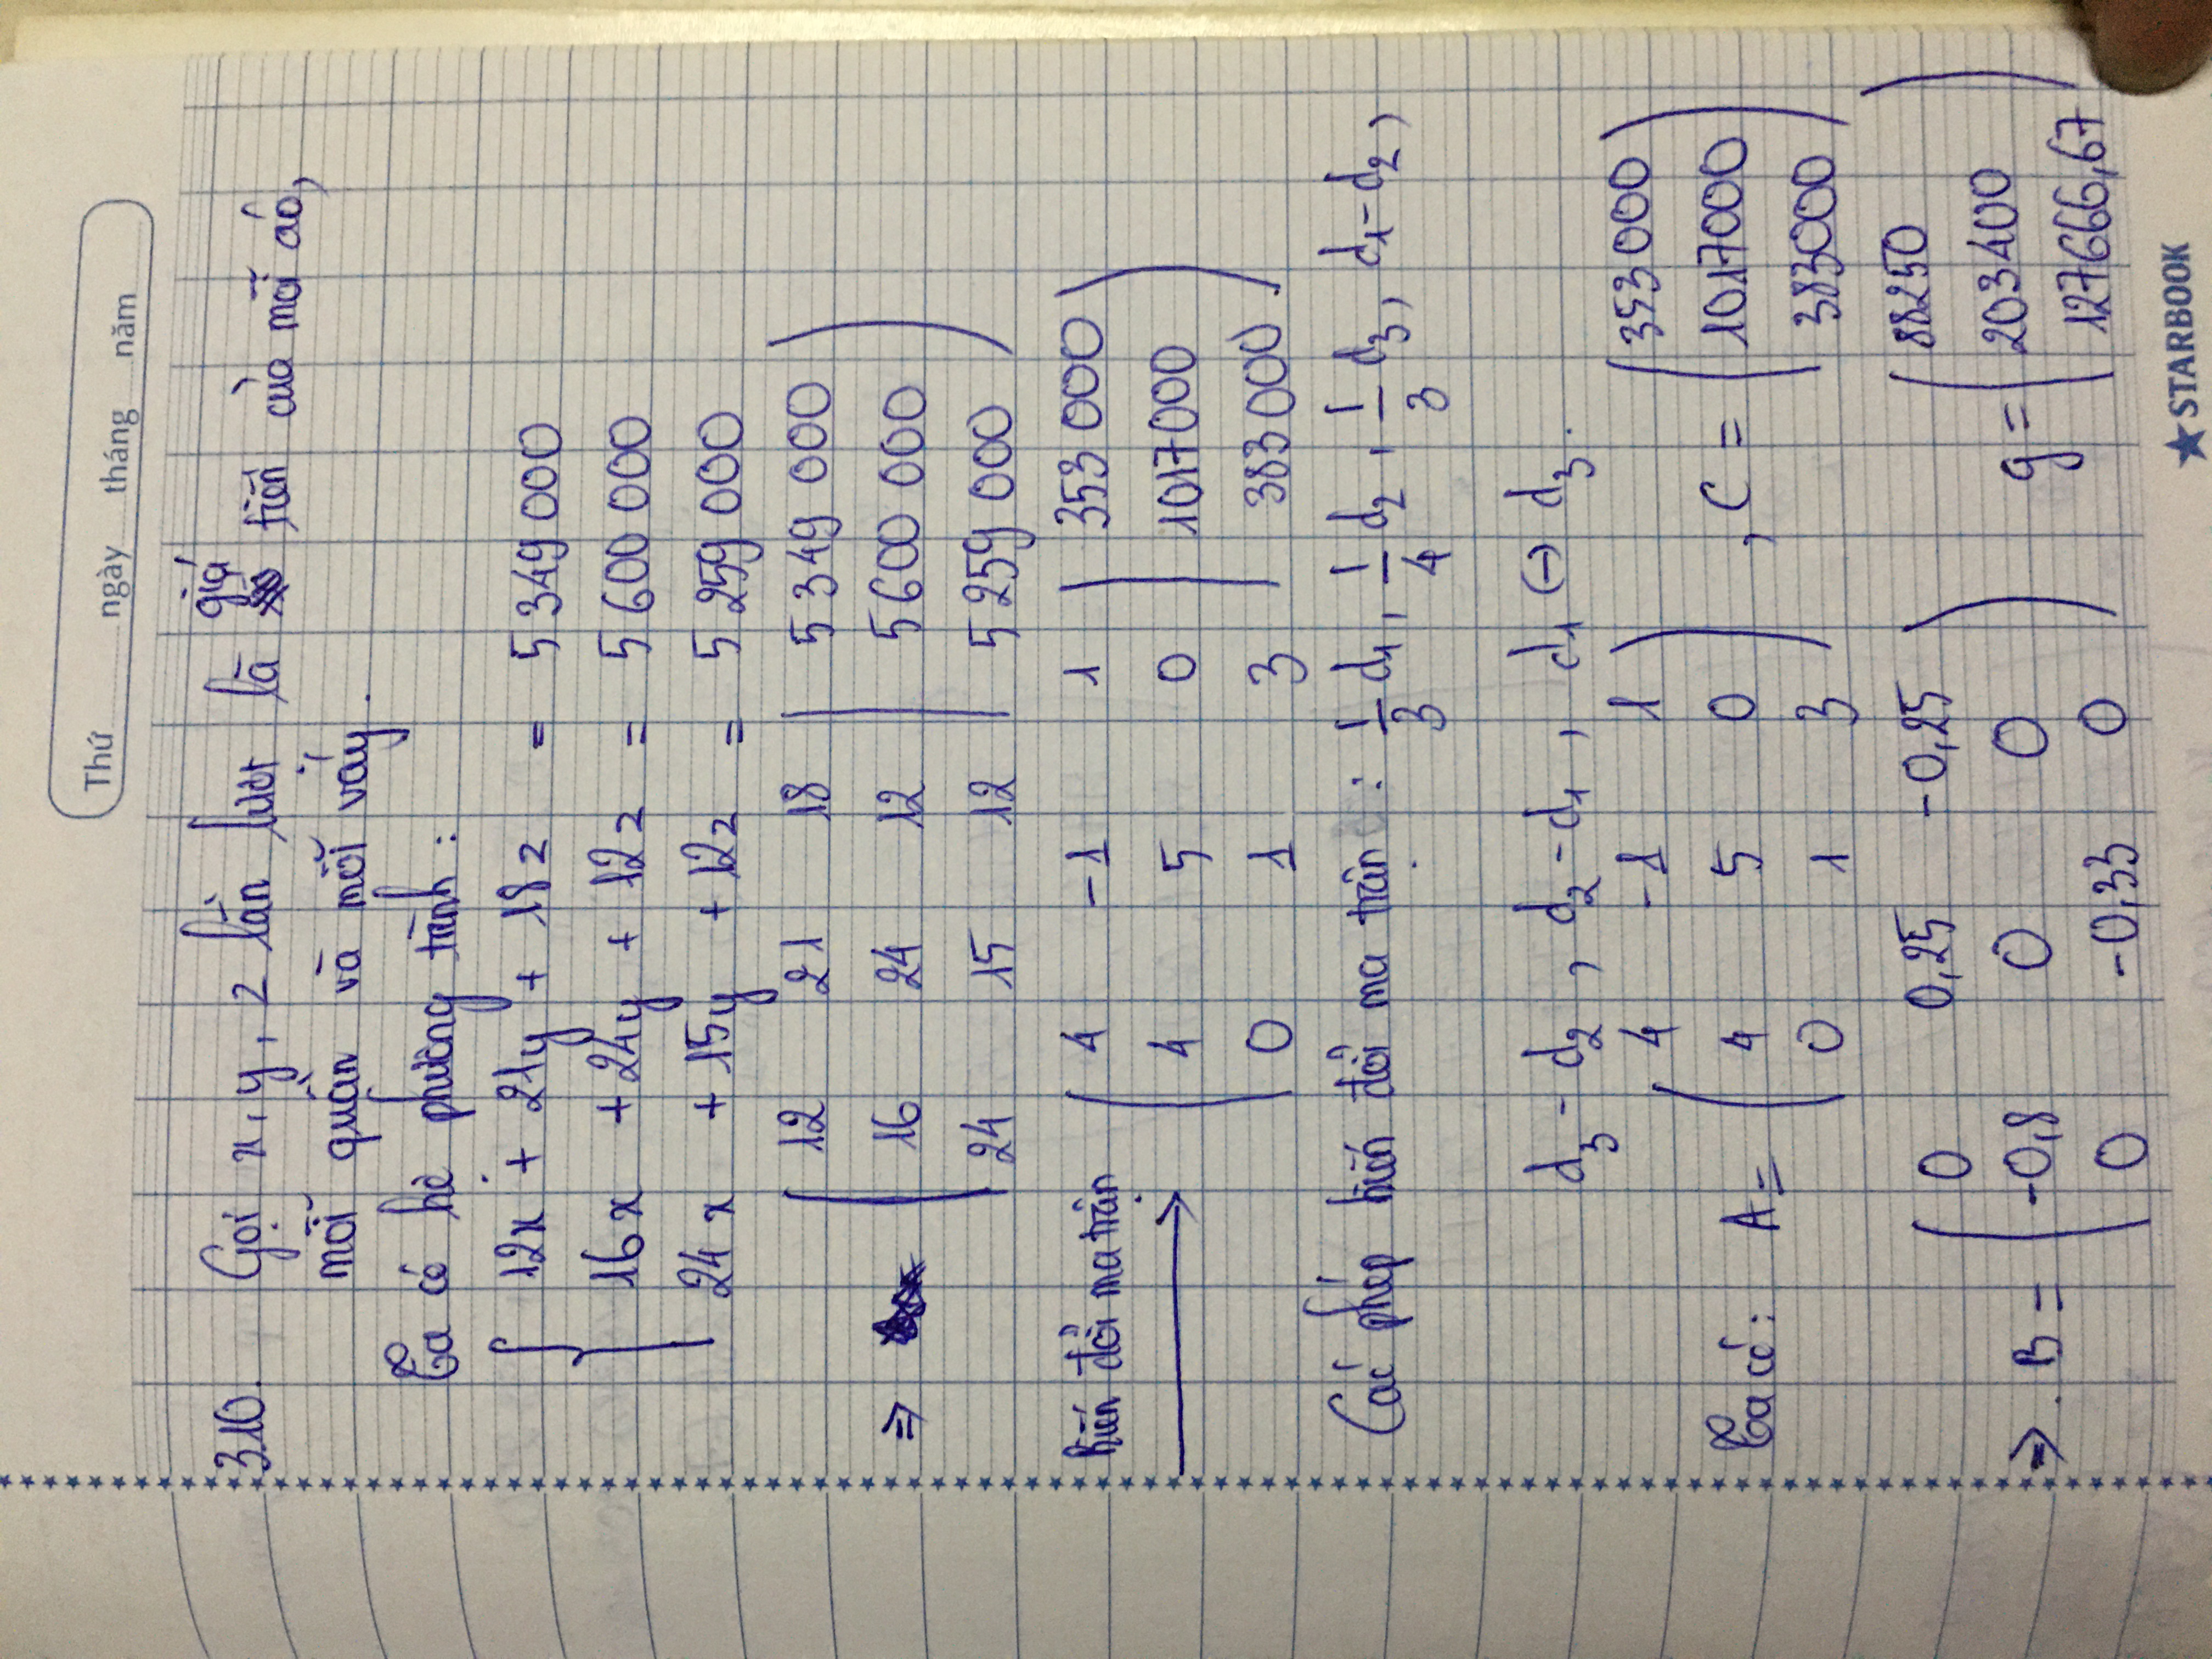 Thứ ngày tháng năm
3.10. Gọi x, y, z lần lượt là giá tiền của mỗi áo,
mỗi quần và mỗi váy.
Ta có hệ phương trình:
12x + 21y + 18z = 5 349 000
16x + 24y + 12z = 5 600 000
24x + 15y + 12z = 5 259 000
12 21 18 | 5 349 000
⇒ 16 24 12 | 5 600 000
24 15 12 | 5 259 000
biến đổi ma trận 4 -1 1 | 353 000
→ 4 5 0 | 1017000
0 1 3 | 383 000
Các phép biến đổi ma trận: 1/3 d1, 1/4 d2, 1/3 d3, d1-d2,
d3 - d2, d2 - d1, d1 ↔ d3.
4 -1 1 353000
Ta có: A = 4 5 0 , C = 1017000
0 1 3 383000
0 0,25 -0,25 88250
⇒ B = -0,8 0 0 g = 203400
0 -0,33 0 127666,67
STARBOOK